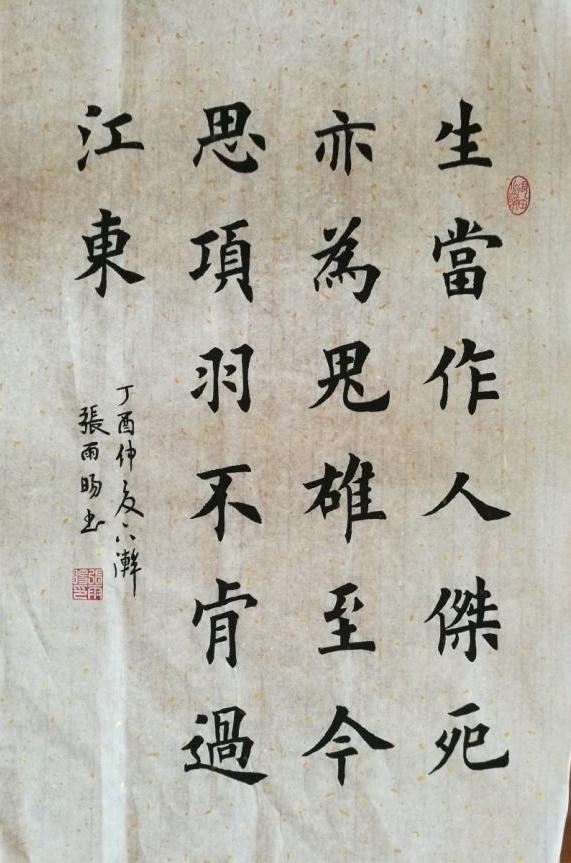 生當作人傑死
亦為鬼雄至今
思項羽不肯過
江東
丁酉仲夏於灊
張雨暘書